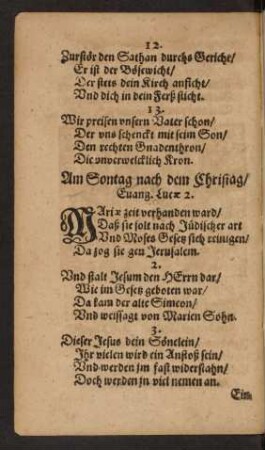 12.
Zurstör den Sathan durchs Gericht/
Er ist der Bösewicht/
Der stets dein Kirch anficht/
Vnd dich in dein Ferß sticht.
13.
Wir preisen vnsern Vater schon/
Der vns schenckt mit seim Son/
Den rechten Gnadenthron/
Die vnverwelcklich Kron.
Am Sontag nach dem Christag/
Euang. Lucæ 2.
MAriæ zeit verhanden ward/
Daß sie solt nach Jüdischer art
Vnd Moses Gesetz sich reinigen/
Da zog sie gen Jerusalem.
2.
Vnd stalt Jesum den HErrn dar/
Wie im Gesetz geboten war/
Da kam der alte Simeon/
Vnd weissagt von Marien Sohn.
3.
Dieser Jesus dein Sönelein/
Ihr vielen wird ein Anstoß sein/
Vnd werden jm fast widerstahn/
Doch werden jn viel nemen an.
Ein